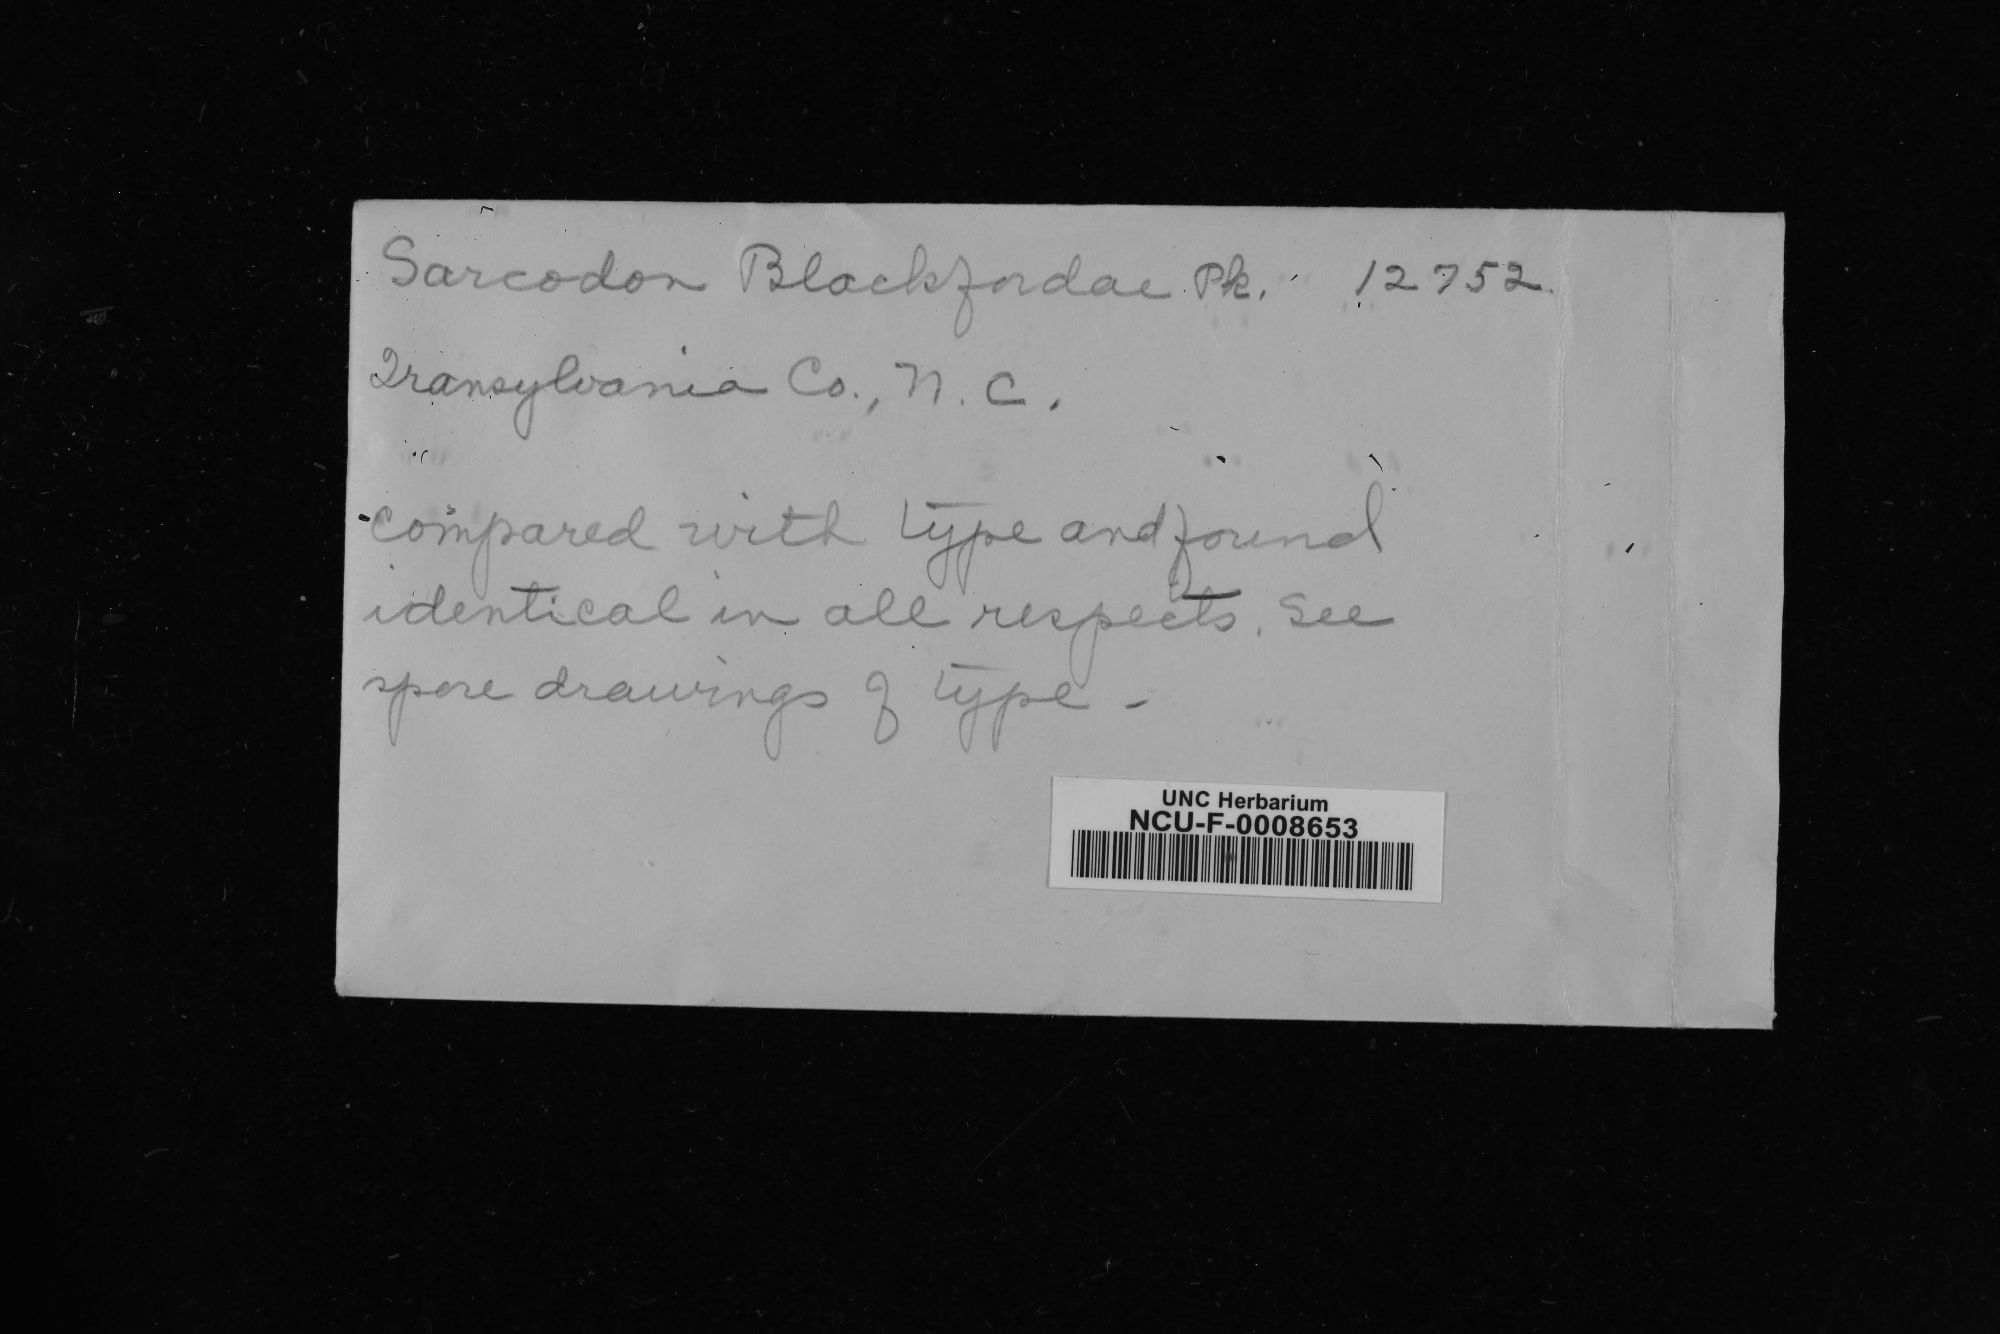 Sarcodon Blackfordae Pk. 12752
Transylvania Co., N. C.
compared with type and found
identical in all respects. See
spore drawings of type -
UNC Herbarium
NCU-F-0008653